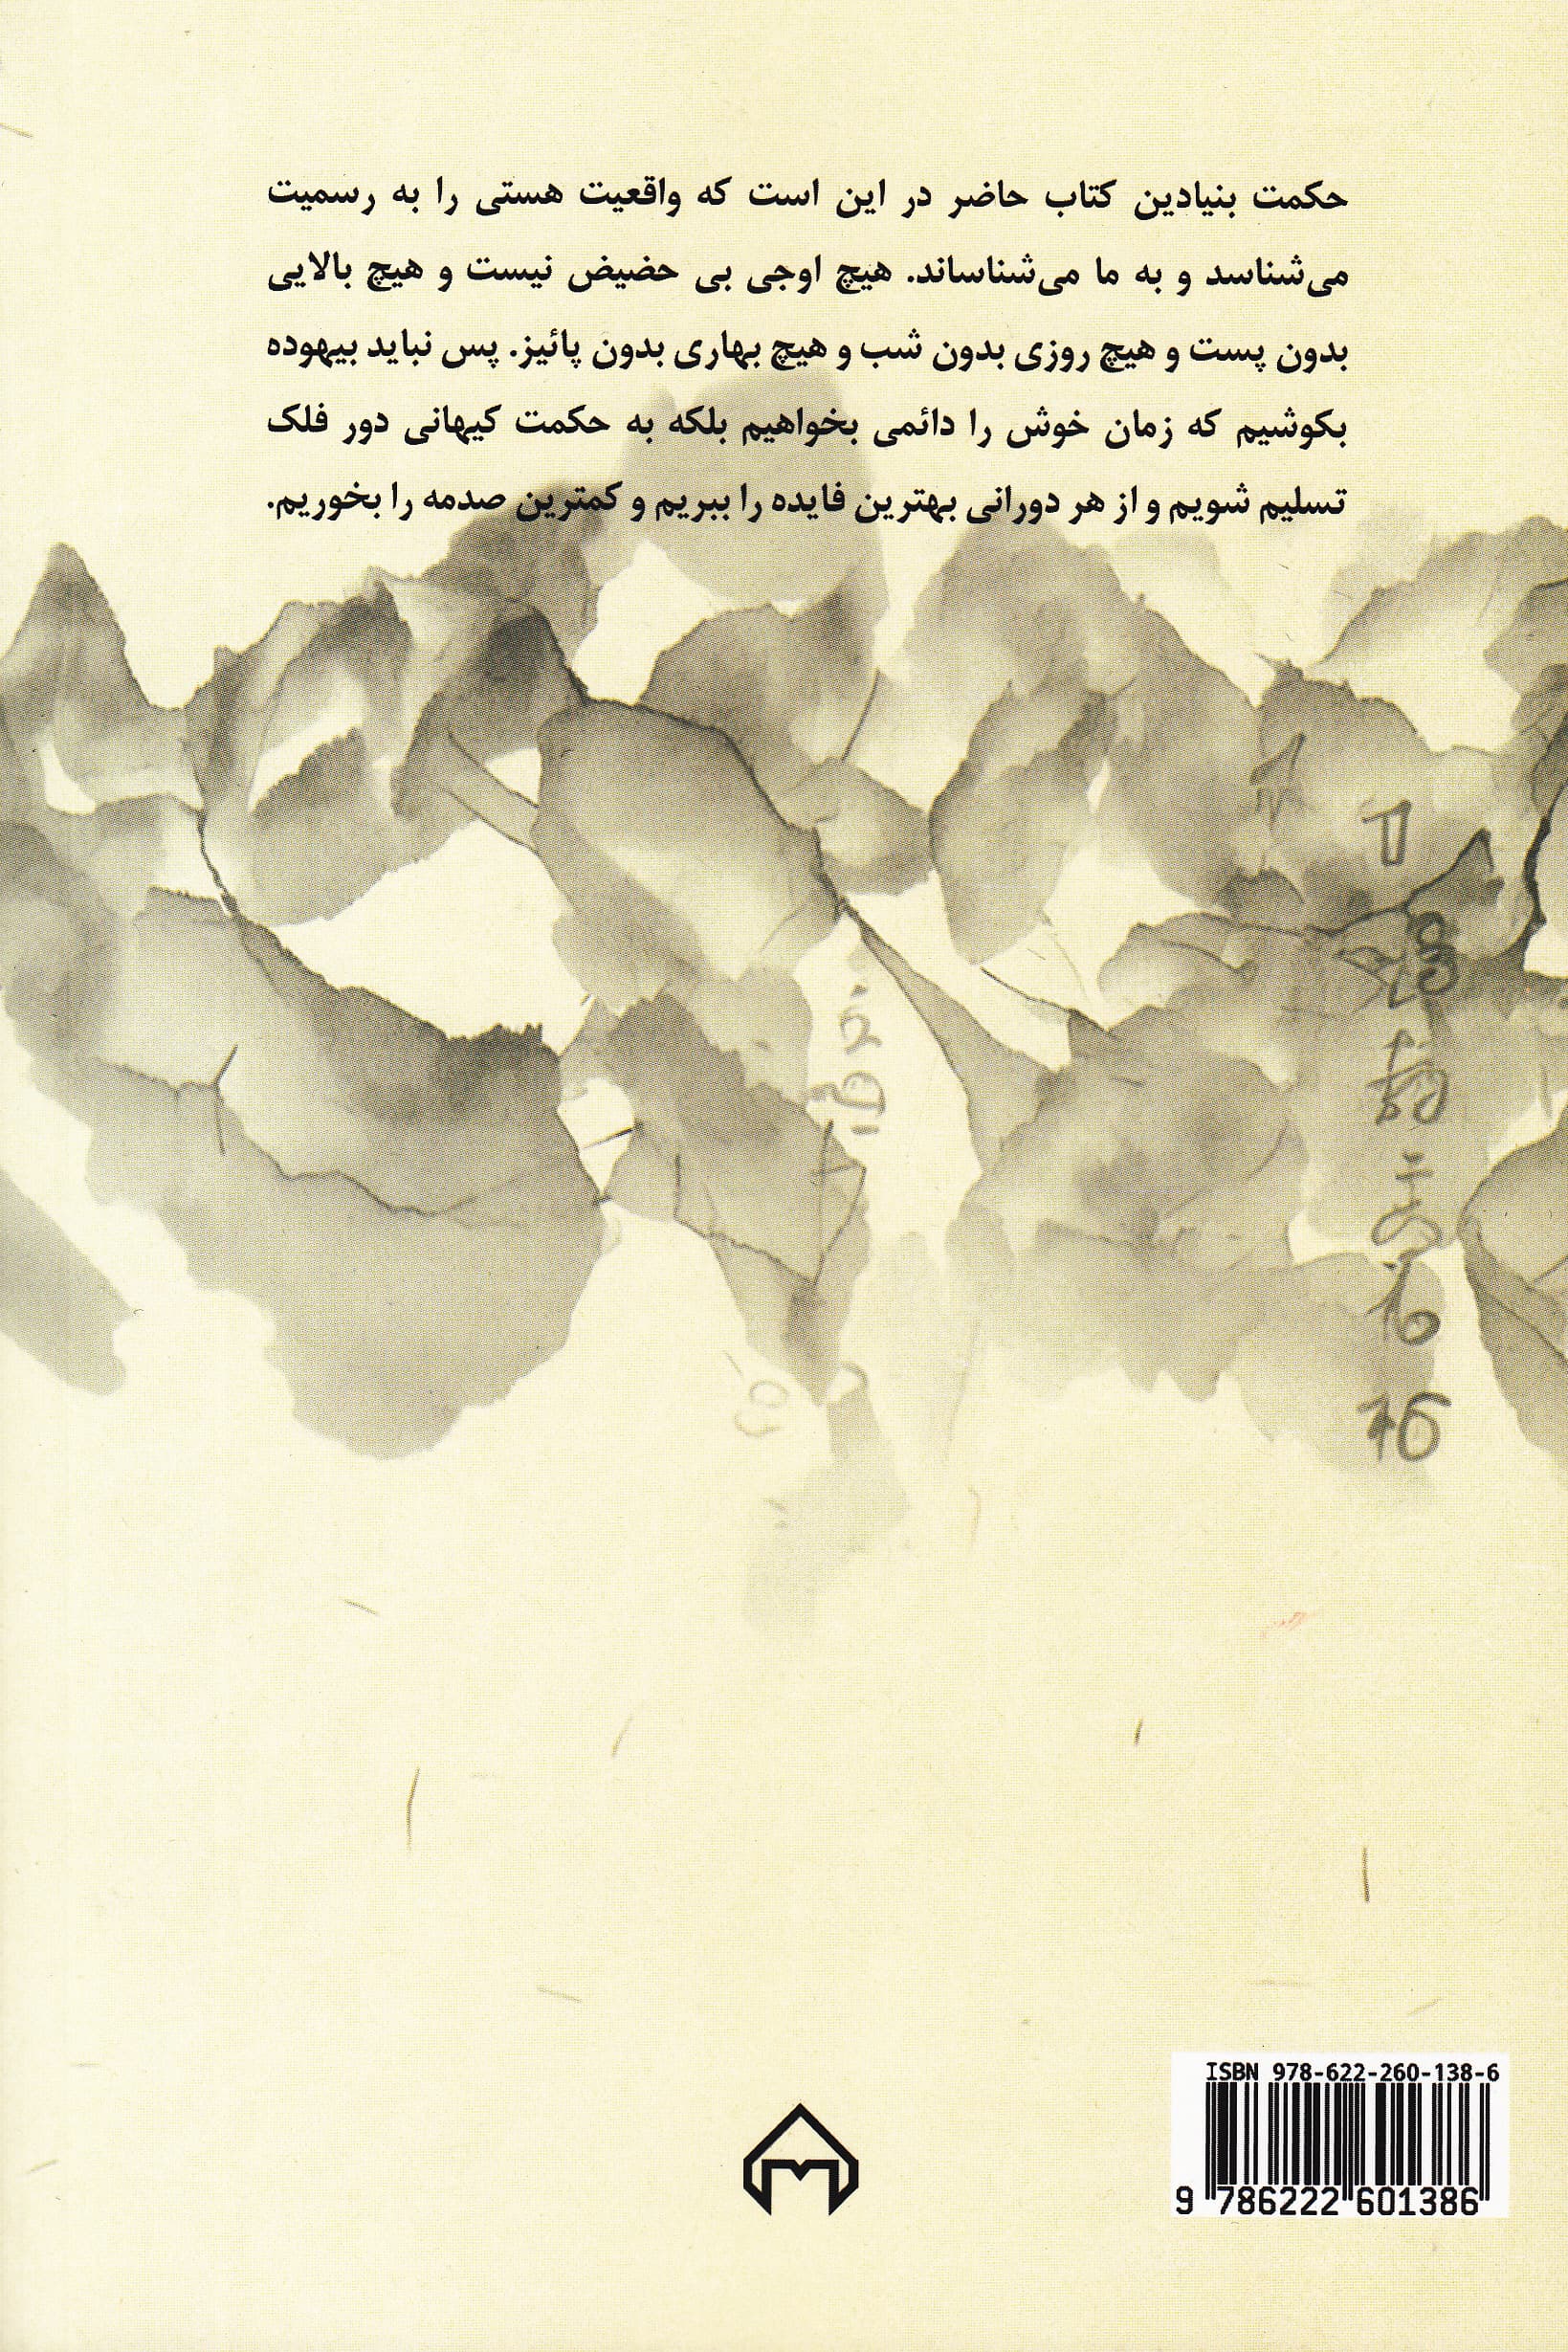 حکمت بنیادین کتاب حاضر در این است که واقعیت هستی را به رسمیت
می‌شناسد و به ما می‌شناساند. هیچ اوجی بی حضیض نیست و هیچ بالایی
بدون پست و هیچ روزی بدون شب و هیچ بهاری بدون پائیز. پس نباید بیهوده
بکوشیم که زمان خوش را دائمی بخواهیم بلکه به حکمت کیهانی دور فلک
تسلیم شویم و از هر دورانی بهترین فایده را ببریم و کمترین صدمه را بخوریم.
ISBN 978-622-260-138-6
9 786222 601386